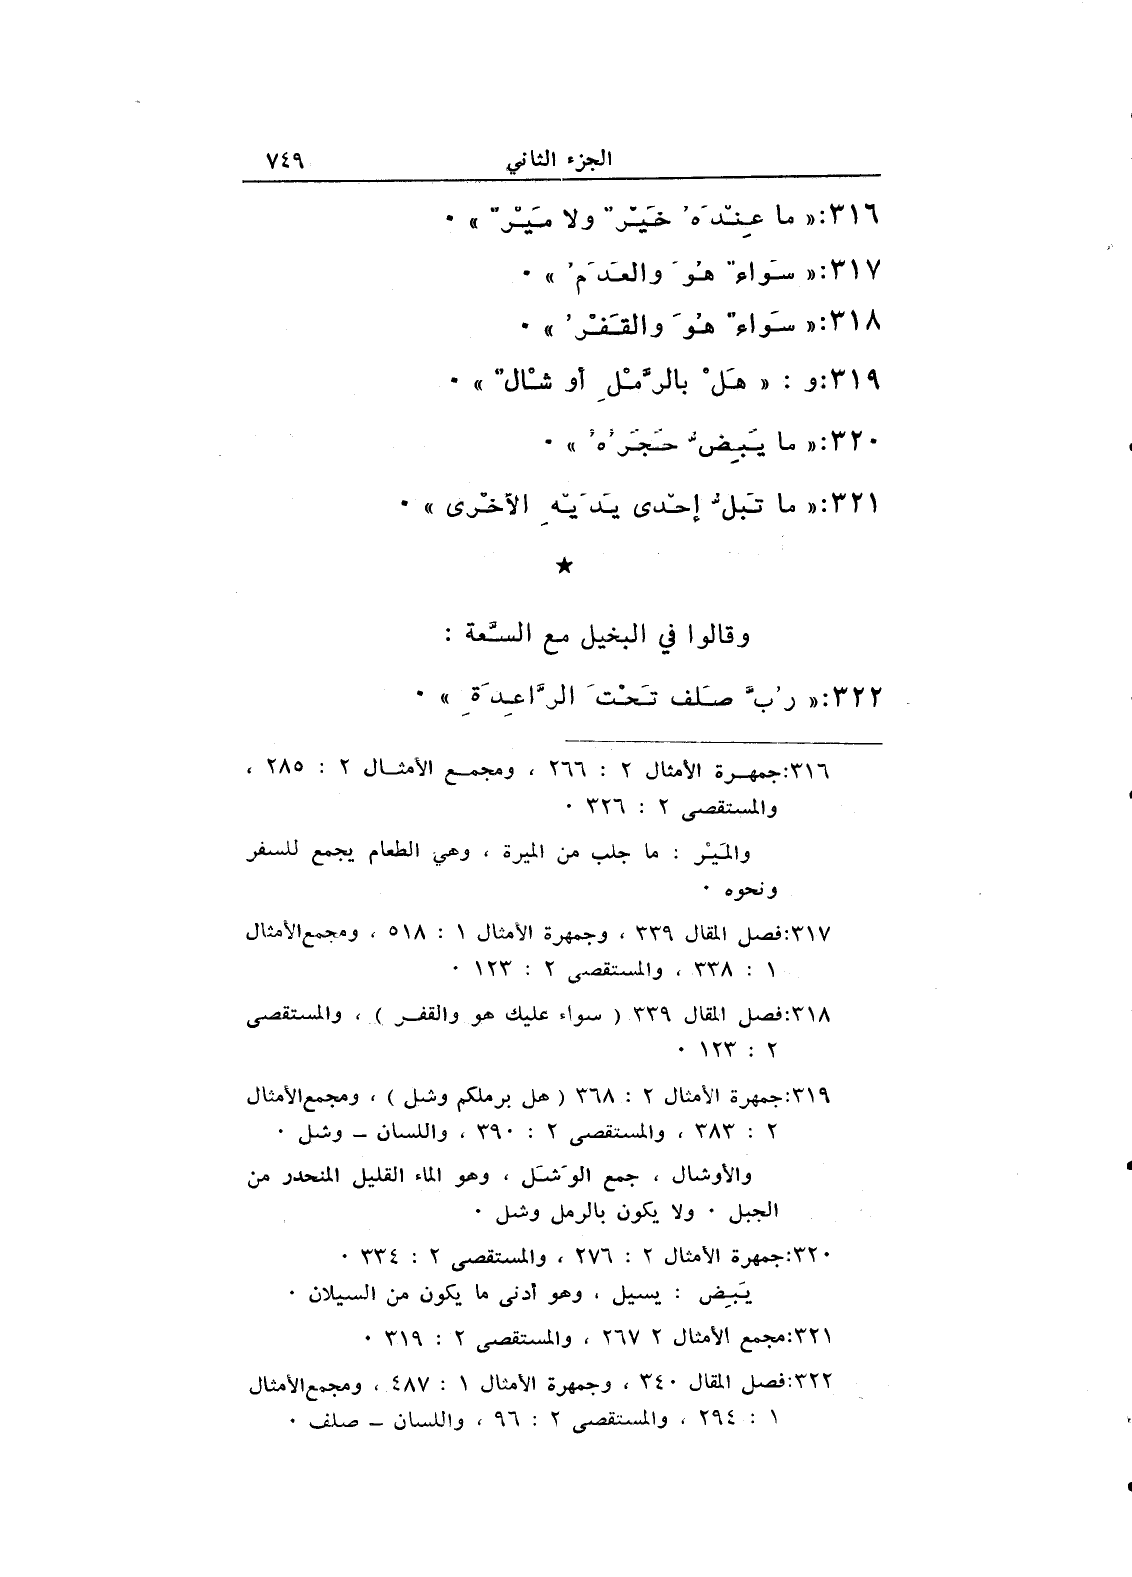 الجزء الثاني ٧٤٩
٣١٦:« ما عِنْدَهُ خَيْرٌ ولا مَيْرٌ » ٠
٣١٧:« سَواءٌ هُوَ والعَدَمُ » ٠
٣١٨:« سَواءٌ هُوَ والقَفْرُ » ٠
٣١٩:و : « هَلْ بالرَّمْلِ أو شْالٌ » ٠
٣٢٠:« ما يَبِضُّ حَجَرُهُ » ٠
٣٢١:« ما تَبَلُّ إحْدى يَدَيْهِ الأخْرى » ٠
★
وقالوا في البخيل مع السَّعة :
٣٢٢:« رُبَّ صَلَف تَحْتَ الرَّاعِدَةِ » ٠
٣١٦:جمهرة الأمثال ٢ : ٢٦٦ ، ومجمع الأمثال ٢ : ٢٨٥ ،
والمستقصى ٢ : ٣٢٦ ٠
والمَيْر : ما جلب من الميرة ، وهي الطعام يجمع للسفر
ونحوه ٠
٣١٧:فصل المقال ٣٣٩ ، وجمهرة الأمثال ١ : ٥١٨ ، ومجمع الأمثال
١ : ٣٣٨ ، والمستقصى ٢ : ١٢٣ ٠
٣١٨:فصل المقال ٣٣٩ ( سواء عليك هو والقفر ) ، والمستقصى
٢ : ١٢٣ ٠
٣١٩:جمهرة الأمثال ٢ : ٣٦٨ ( هل برملكم وشل ) ، ومجمع الأمثال
٢ : ٣٨٣ ، والمستقصى ٢ : ٣٩٠ ، واللسان – وشل ٠
والأوشال ، جمع الوَشَل ، وهو الماء القليل المنحدر من
الجبل ٠ ولا يكون بالرمل وشل ٠
٣٢٠:جمهرة الأمثال ٢ : ٢٧٦ ، والمستقصى ٢ : ٣٣٤ ٠
يَبِض : يسيل ، وهو أدنى ما يكون من السيلان ٠
٣٢١:مجمع الأمثال ٢ ٢٦٧ ، والمستقصى ٢ : ٣١٩ ٠
٣٢٢:فصل المقال ٣٤٠ ، وجمهرة الأمثال ١ : ٤٨٧ ، ومجمع الأمثال
١ : ٢٩٤ ، والمستقصى ٢ : ٩٦ ، واللسان – صلف ٠